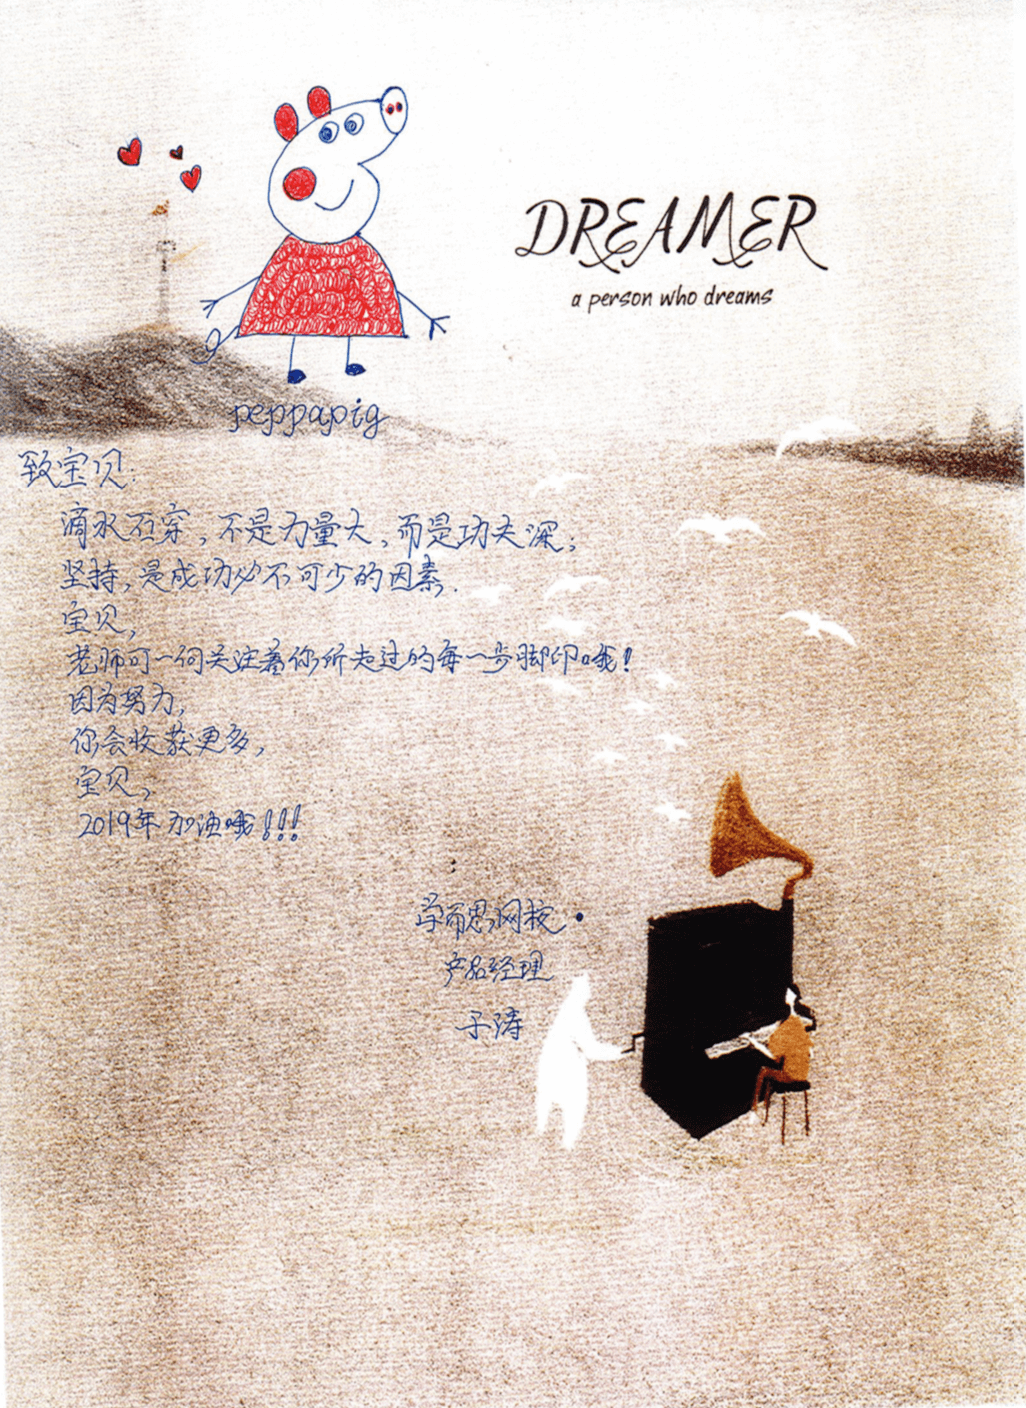 DREAMER
a person who dreams
peppapig
致宝贝:
滴水石穿,不是力量大,而是功夫深;
坚持,是成功必不可少的因素.
宝贝,
老师可一何关注着你所走过的每一步脚印哦!
因为努力,
你会收获更多,
宝贝,
2019年加油哦!!!
学而思网校·
产品经理
子涛